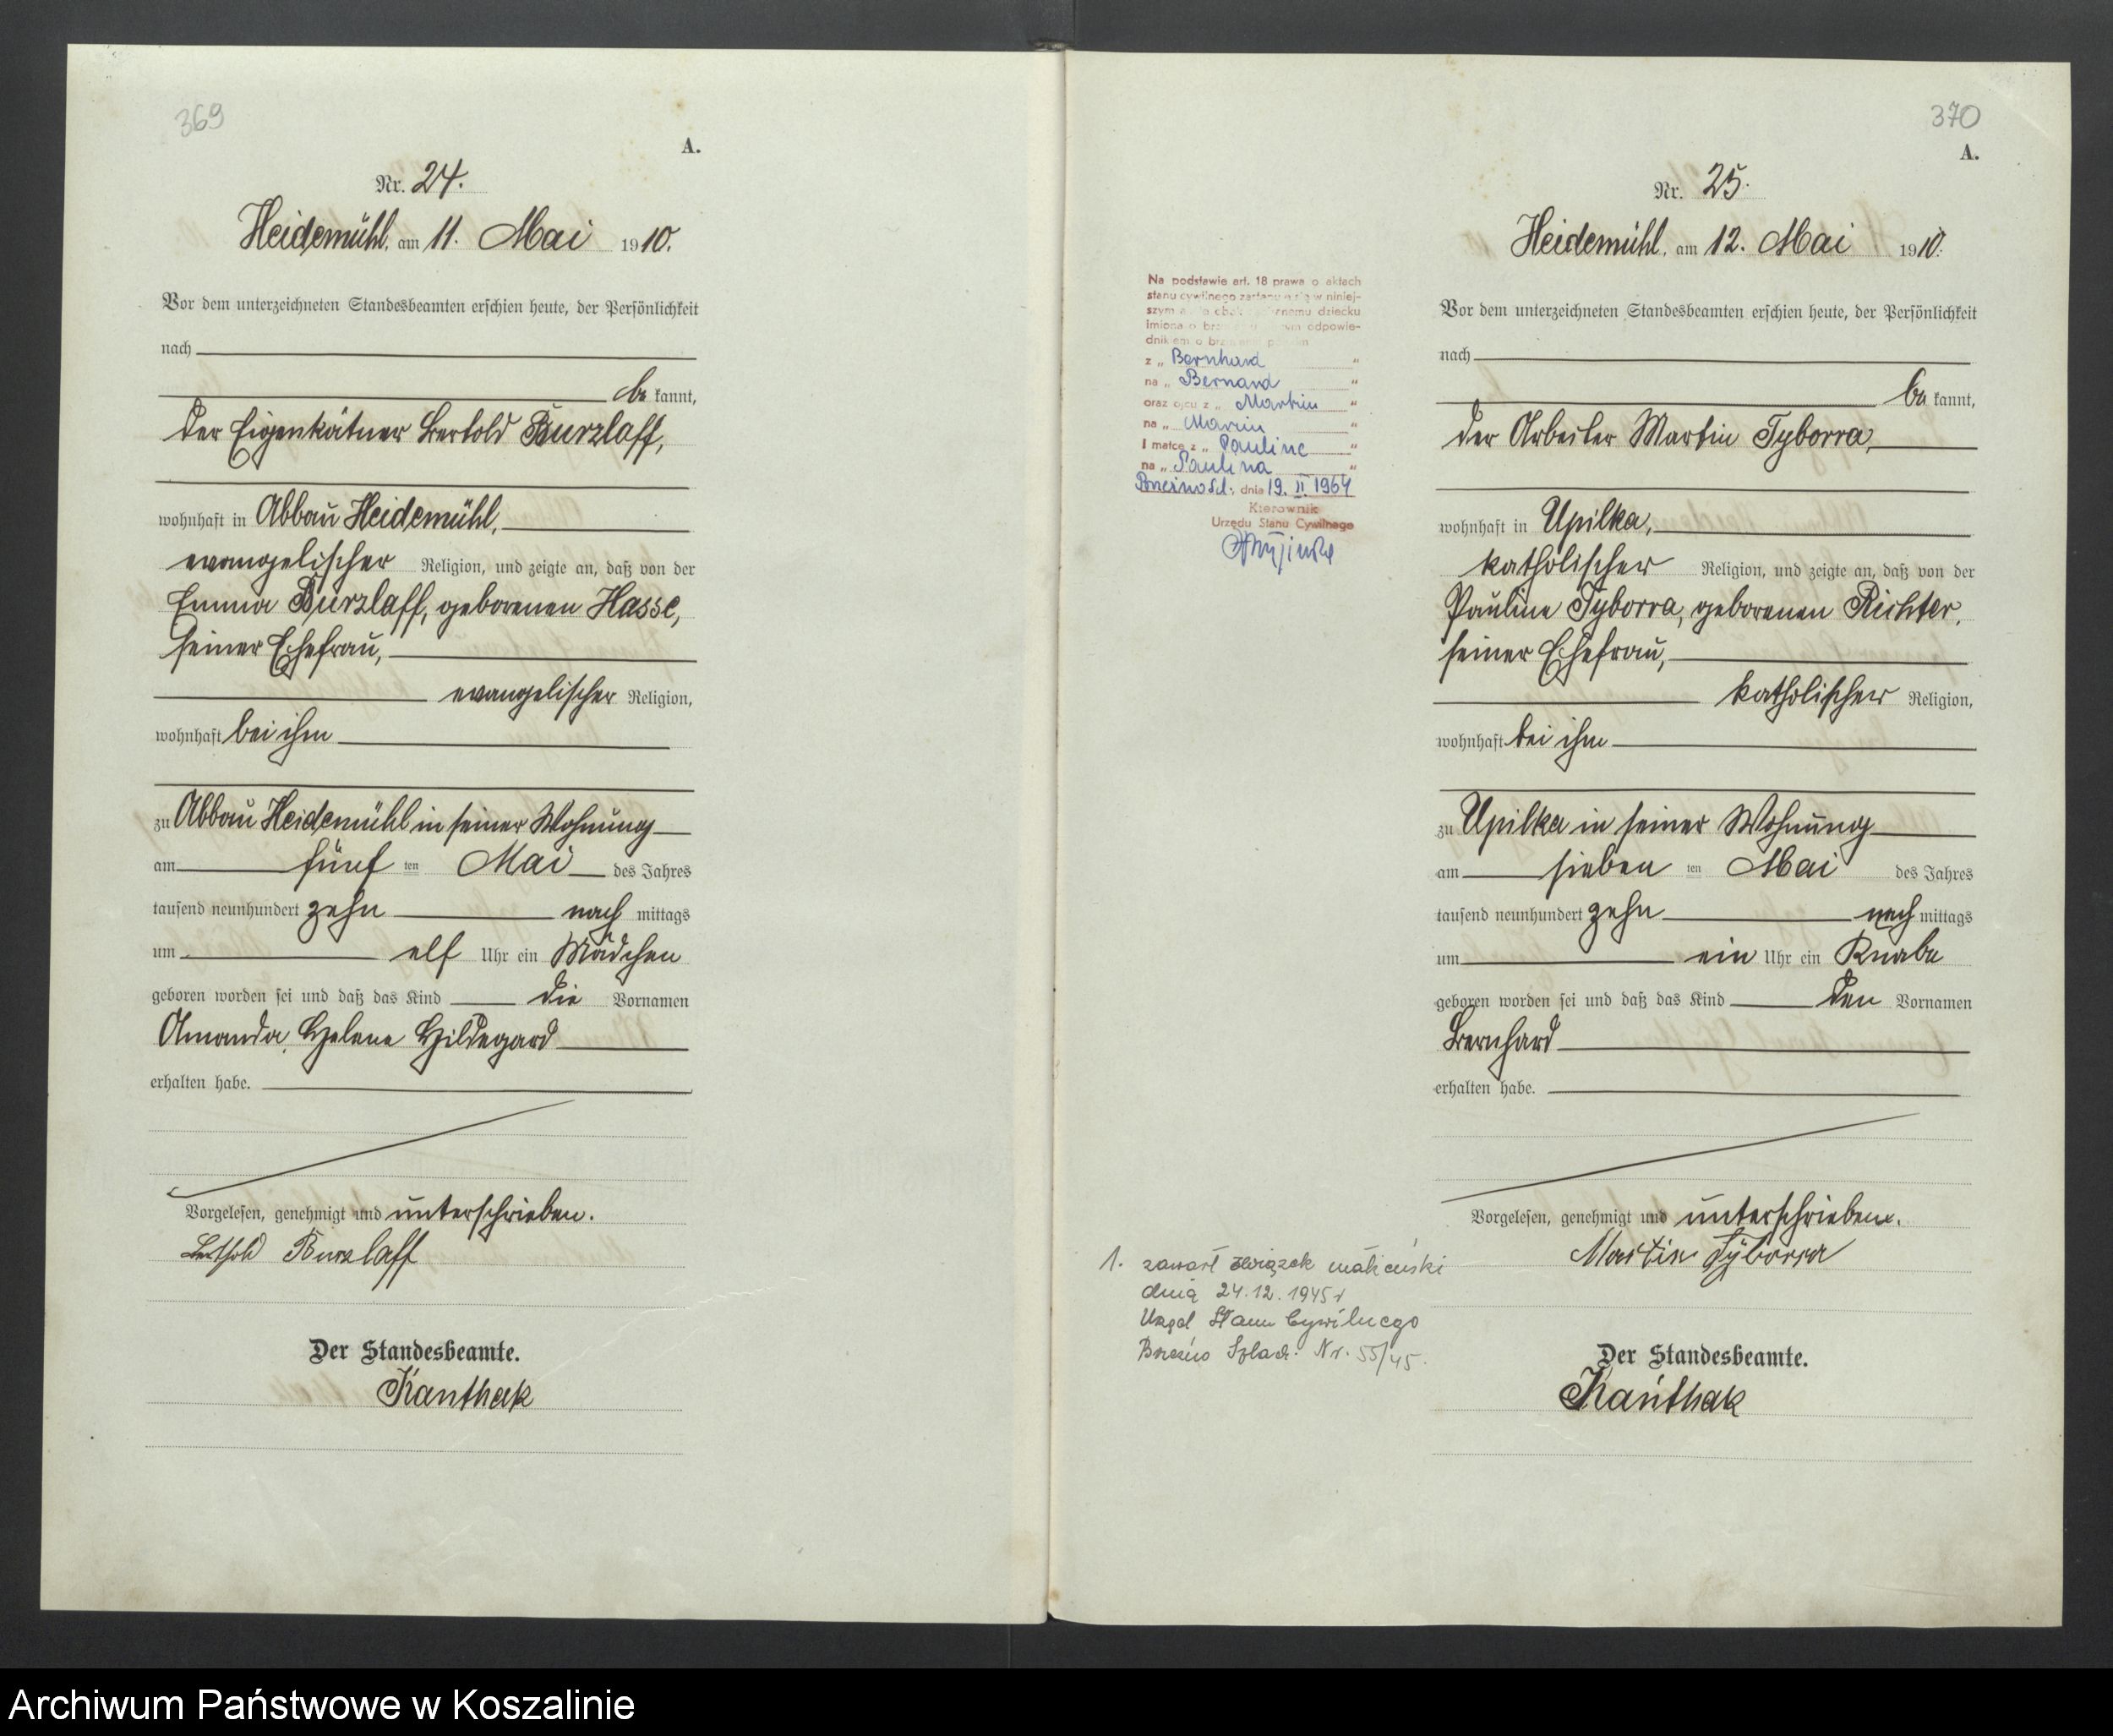 369
A.
Nr. 24.
Heidemühl, am 11. Mai 1910.
Vor dem unterzeichneten Standesbeamten erschien heute, der Persönlichkeit
nach
be kannt,
der Eigenkätner Bertold Burzlaff,
wohnhaft in Abbau Heidemühl,
evangelischer Religion, und zeigte an, daß von der
Emma Burzlaff, geborenen Hasse,
seiner Ehefrau,
evangelischer Religion,
wohnhaft bei ihm
zu Abbau Heidemühl in seiner Wohnung
am fünf ten Mai des Jahres
tausend neunhundert zehn nach mittags
um elf Uhr ein Mädchen
geboren worden sei und daß das Kind die Vornamen
Amanda, Helene Hildegard
erhalten habe.
Vorgelesen, genehmigt und unterschrieben.
Berthold Burzlaff
Der Standesbeamte.
Kanthak
370
A.
Nr. 25.
Heidemühl, am 12. Mai 1910.
Vor dem unterzeichneten Standesbeamten erschien heute, der Persönlichkeit
nach
be kannt,
der Arbeiter Martin Tyborra,
wohnhaft in Upilka,
katholischer Religion, und zeigte an, daß von der
Pauline Tyborra, geborenen Richter,
seiner Ehefrau,
katholischer Religion,
wohnhaft bei ihm
zu Upilka in seiner Wohnung
am sieben ten Mai des Jahres
tausend neunhundert zehn nach mittags
um ein Uhr ein Knabe
geboren worden sei und daß das Kind den Vornamen
Bernhard
erhalten habe.
Vorgelesen, genehmigt und unterschrieben.
Martin Tyborra
Der Standesbeamte.
Kanthak
Na podstawie art. 18 prawa o aktach
stanu cywilnego w niniej-
szym dziecku
imiona o odpowie-
dnikiem o
z „ Bernhard "
na „ Bernard "
oraz ojcu z „ Martin "
na „ Marcin "
i matce z „ Pauline "
na „ Paulina "
Brzeźno Szl., dnia 19. II. 1964
Kierownik
Urzędu Stanu Cywilnego
1. zawarł związek małżeński
dnia 24.12.1945 r
Urząd Stanu Cywilnego
Brzeźno Szlach. Nr. 55/45.
Archiwum Państwowe w Koszalinie